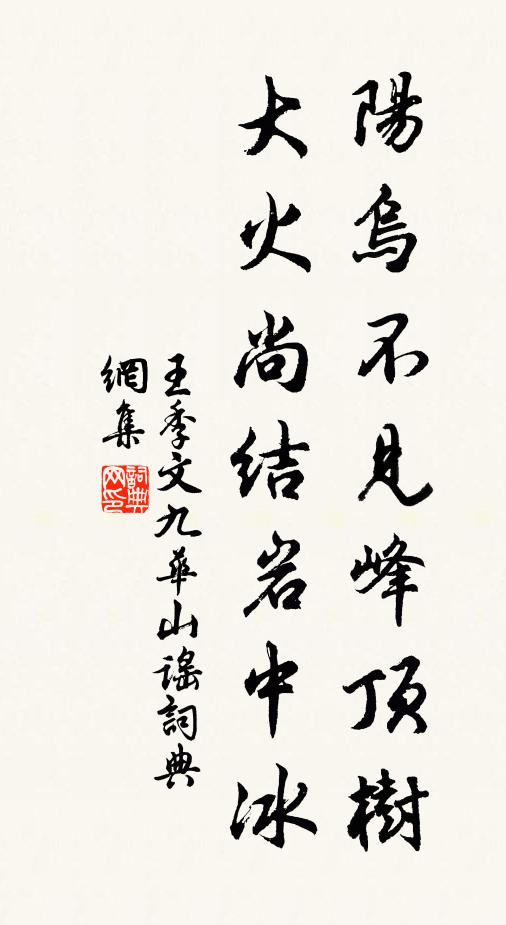 陽烏不見峰頂樹
大火尚结岩中冰
王季文九華山謠詞典
網集
詞典
网印